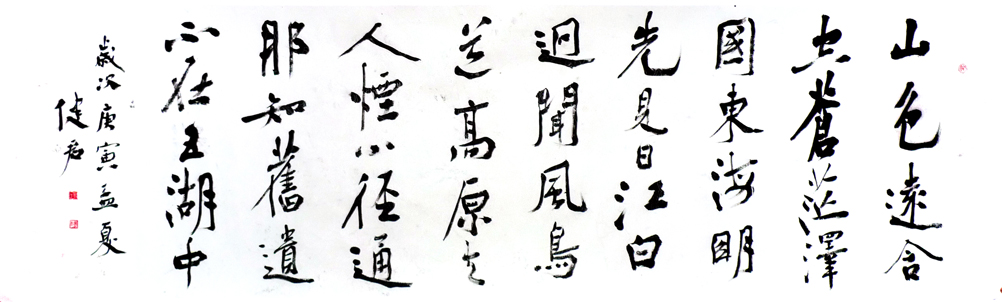 山色遠含
空蒼茫澤
國東海明
先見日江白
迥聞風鳥
道高原去
人煙小徑通
那知舊遺
不在五湖中
歲次庚寅孟夏
健君